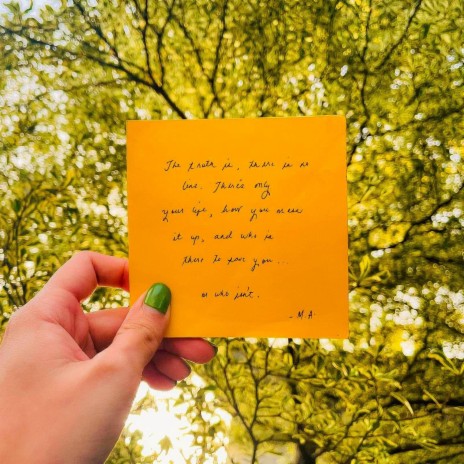 The truth is, there is no
line. There's only
your life, how you mess
it up, and who is
there to save you...
or who isn't.
- M.A.